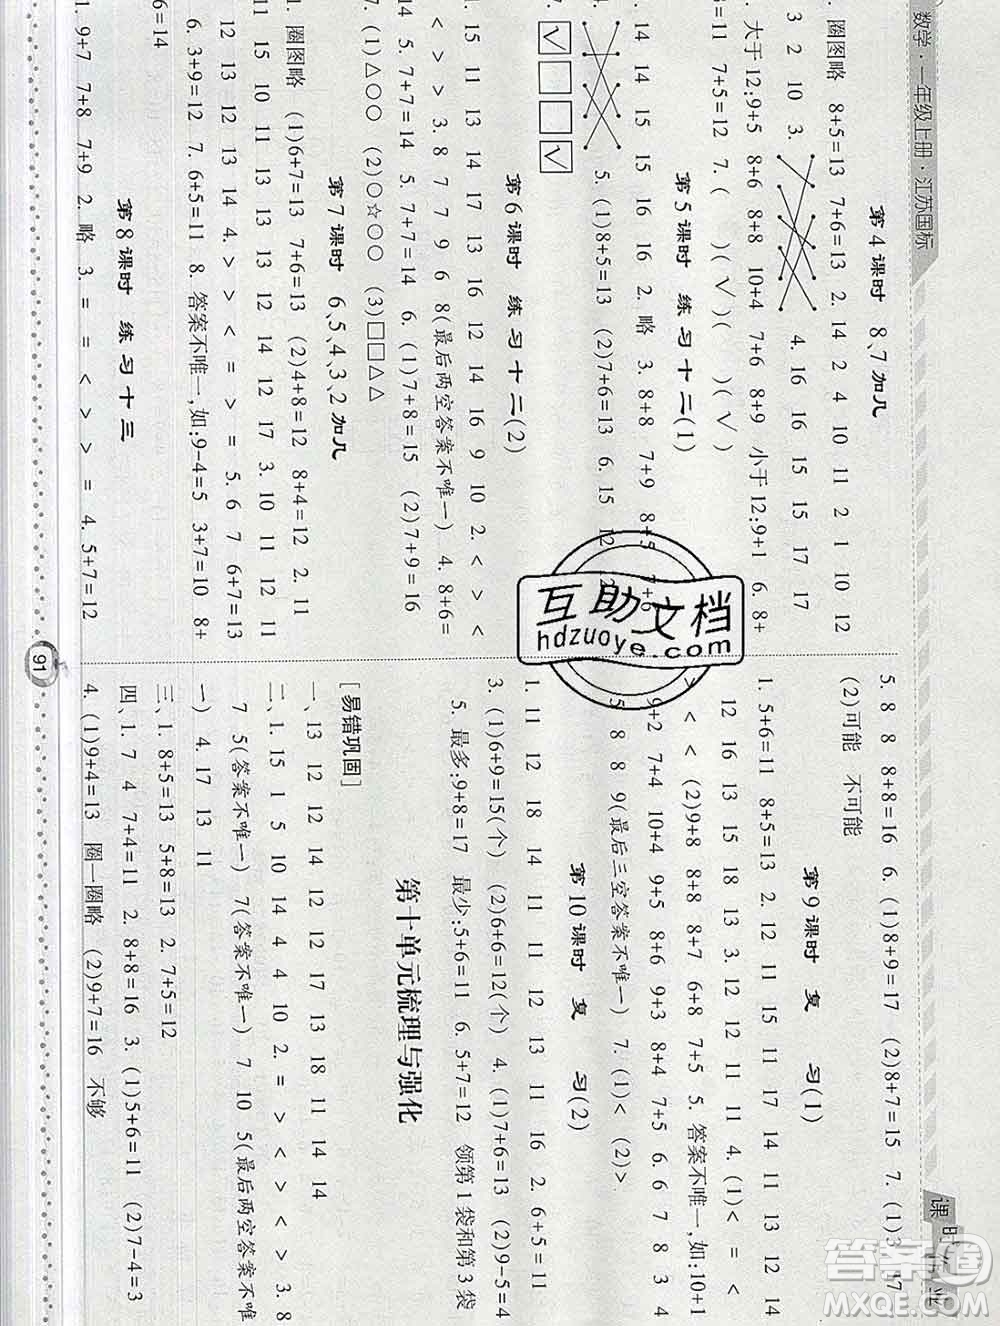 数学·一年级上册·江苏国标
课时作业
第4课时 8、7加几
圈图略 8+5=13 7+6=13 2. 14 2 4 10 11 2 1 10
3 2 10 3.
4. 16 16 15 15 17 17
大于12:9+5 8+6 8+8 10+4 7+6 8+9 小于12:9+1 6. 8+
=11 7+5=12 7. ( )(√)( )(√)
第5课时 练习十二(1)
14 14 15 15 16 16 2. 略 3. 8+8 7+9 8+5 7+6
4.
5. (1)8+5=13 (2)7+6=13 6. 15 12
√ √
第6课时 练习十二(2)
15 15 13 14 17 13 16 12 14 16 9 10 2. < <
< > > 3. 8 7 7 9 6 8(最后两空答案不唯一) 4. 8+6=
14 7+7=14 5. 7+7=14 6. (1)7+8=15 (2)7+9=16
7. (1)△○○ (2)○☆○○ (3)□□△△
第7课时 6、5、4、3、2加几
1. 圈图略 (1)6+7=13 7+6=13 (2)4+8=12 8+4=12 2. 11
11 15 10 11 13 13 13 12 14 12 17 3. 10 11 12 11
12 13 12 13 14 4. > > < = > = 5. 6 7 6+7=13
>9+8=17 7. 6+5=11 8. 答案不唯一,如:9-4=5 3+7=10 8+
6=14
第8课时 练习十三
1. 9+7 7+8 7+9 2. 略 3. = = < > > = 4. 5+7=12
5. 8 8 8+8=16 6. (1)8+9=17 (2)8+7=15 7. (1)3 17
(2)可能 不可能
第9课时 复习(1)
1. 5+6=11 8+5=13 2. 12 15 11 14 11 12 11 11 15
12 16 13 15 17 12 3. 11 12 14 4. (1)< > = <
> < < (2)9+8 8+8 8+7 8+6 7+5 5. 答案不唯一,如:10+1
9+2 7+4 10+4 9+5 8+6 10+5 9+6 8+7 6. 6 7 8 3 4
5 8 8 9(最后三空答案不唯一) 7. (1)< (2)>
第10课时 复习(2)
1. 11 12 18 14 11 11 12 13 11 16 2. 6+5=11
3. (1)6+9=15(个) (2)6+6=12(个) 4. (1)7+6=13 (2)9-5=4
5. 最多:9+8=17 最少:5+6=11 6. 5+7=12 领第1袋和第3袋
第十单元梳理与强化
[易错巩固]
一、13 12 12 14 12 12 17 13 18 11 14 14
二、1. 15 1 5 10 14 4 10 2. = > < < < > 3. 8
7 5(答案不唯一) 7(答案不唯一) 7 10 5(最后两空答案不唯
一) 4. 17 13 11
三、1. 8+5=13 5+8=13 2. 7+5=12
四、1. 7 4 7+4=11 2. 8+8=16 3. (1)5+6=11 (2)7-4=3
4. (1)9+4=13 圈一圈略 (2)9+7=16 不够
91
互助文档
hdzuoye.com
答案圈
MXQE.COM